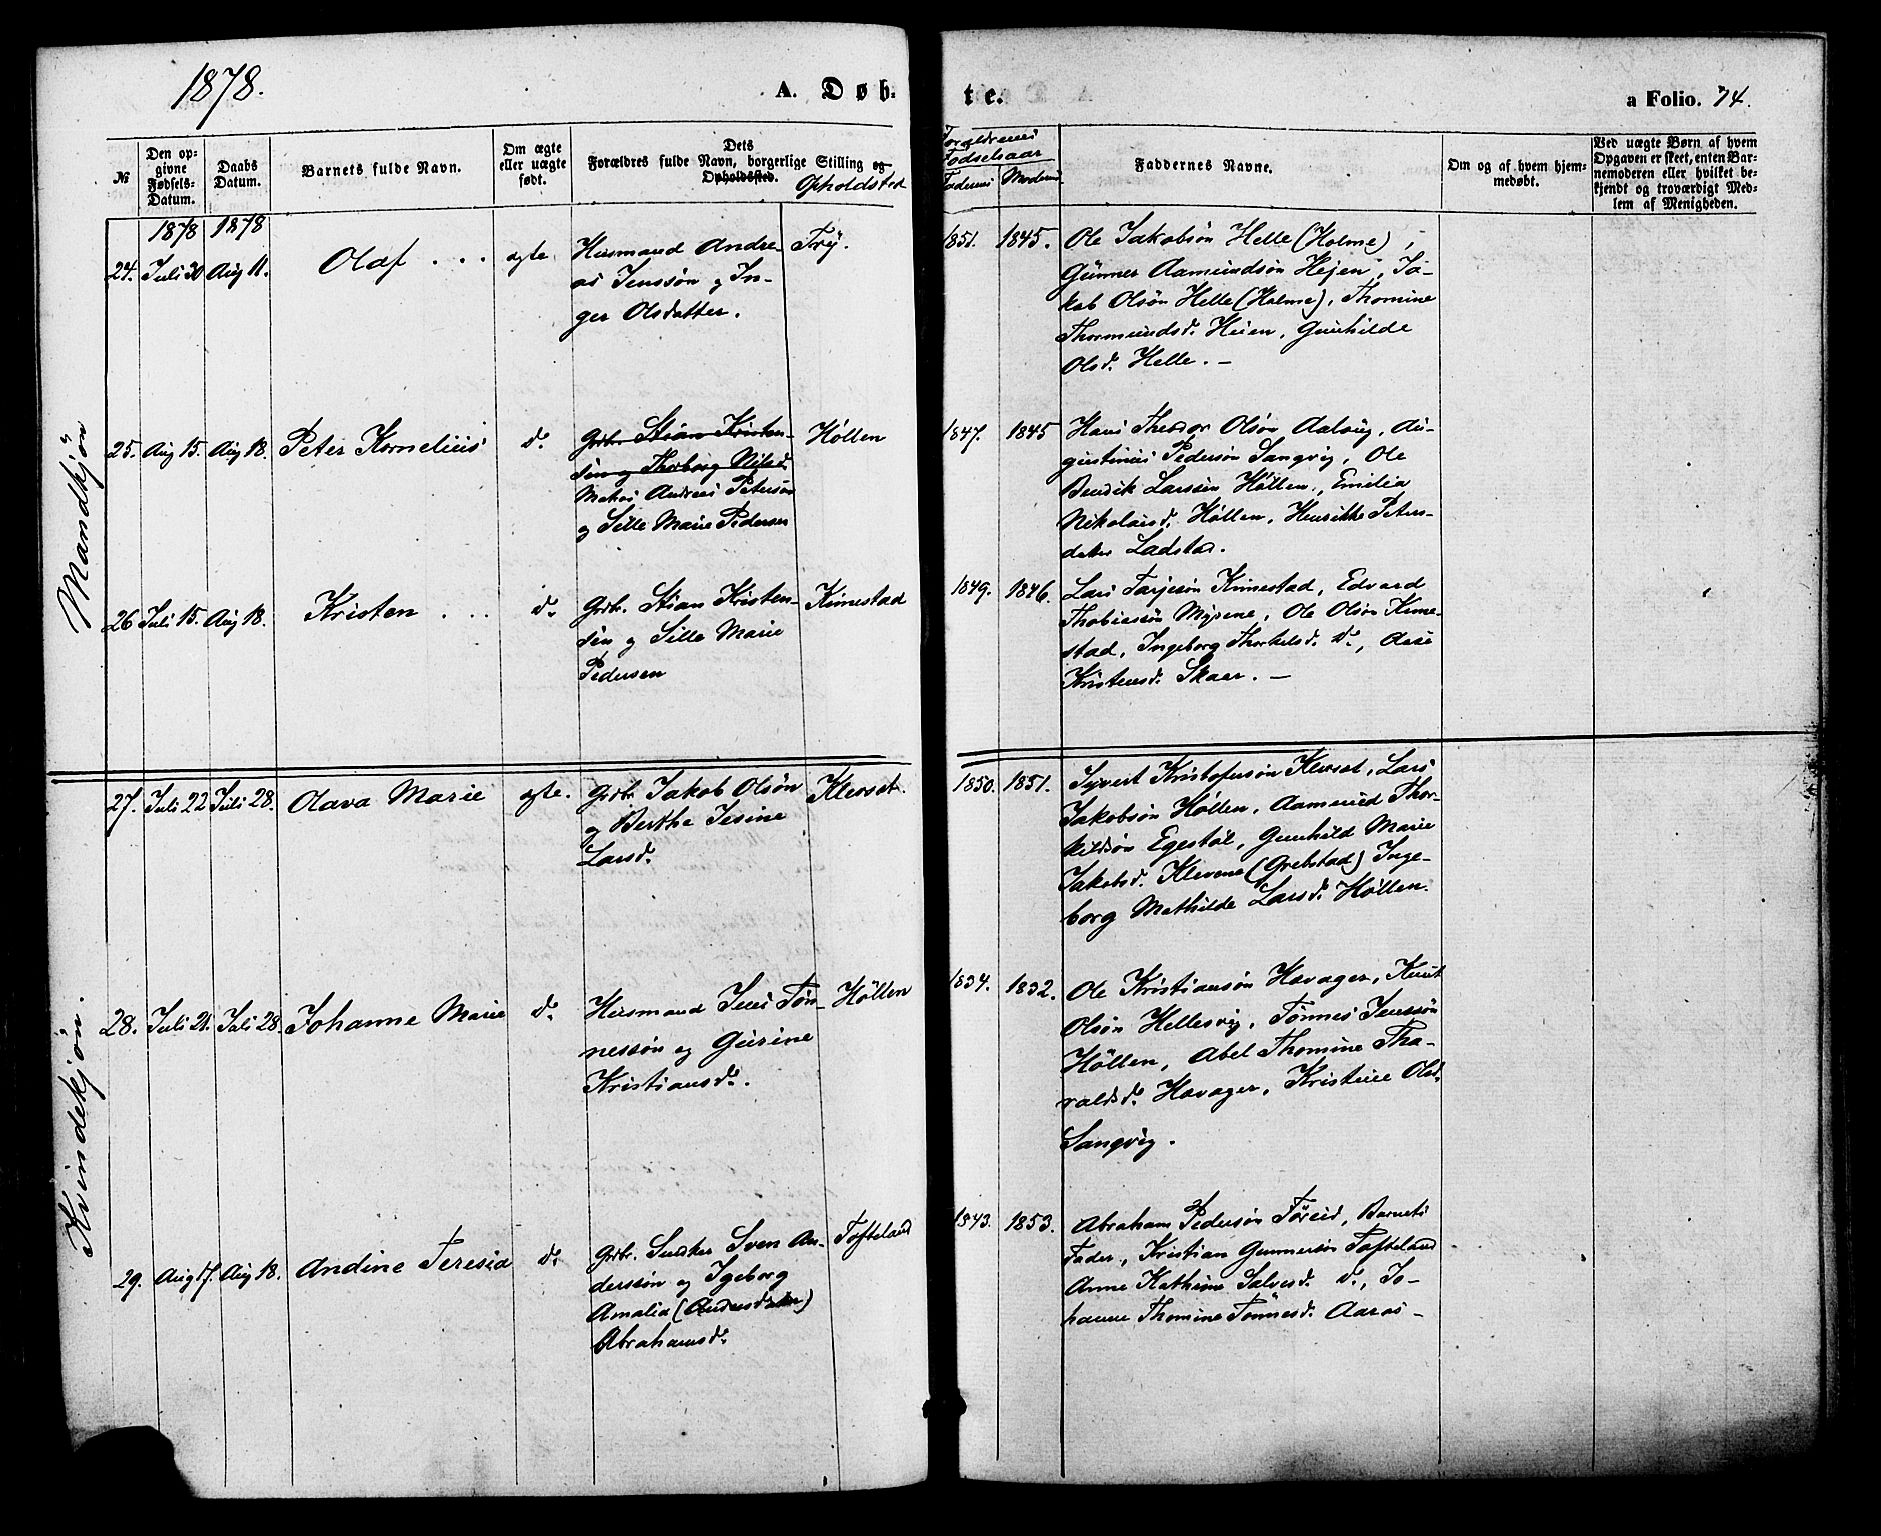 1878.
A. Døb-
te.
a Folio. 74.
№
Den op-
givne
Fødsels-
Datum.
Daabs
Datum.
Barnets fulde Navn.
Om ægte
eller uægte
født.
Dets
Forældres fulde Navn, borgerlige Stilling og
Opholdssted.
Opholdssted
Forældrenes
Fødselsaar
Faderens Moderens
Faddernes Navne.
Om og af hvem hjem-
medøbt.
Ved uægte Børn af hvem
Opgaven er skeet, enten Bar-
nemoderen eller hvilket be-
kjendt og troværdigt Med-
lem af Menigheden.
Mandkjøn
1878 1878
24. Juli 30 Aug 11. Olaf . . . ægte
Husmand Andre-
as Jenssøn og In-
ger Olsdatter.
Try.
1851. 1845.
Ole Jakobsøn Helle (Holme),
Gunner Aamundsøn Hejen, Ja-
kob Olsøn Helle (Holme), Thomine
Thormundsd. Heien, Gunhilde
Olsd. Helle. —
25. Aug 15. Aug 18. Peter Kornelius d.
Grdbr. Stian Kristen-
sen og Thorborg Nilsd.
Matias Andreas Petersøn
og Sille Marie Pedersen
Høllen
1847. 1845
Hans Theodor Olsøn Aalvig, Au-
gustinus Pedersøn Langvig, Ole
Bendik Larssøn Høllen, Emilia
Nikolaisd. Høllen, Henrikke Peters-
datter Ladstad.
26 Juli 15. Aug 18. Kristen . . . d.
Grdbr. Stian Kristen-
sen og Sille Marie
Pedersen
Kimestad
1849. 1846.
Lars Tarjesøn Kimestad, Edvard
Thobiassøn Myrene, Ole Olsøn Kime-
stad, Ingeborg Thorkelsd. d., Aase
Kristensd. Skaar. —
Kvindekjøn.
27. Juli 22 Juli 28. Olava Marie ægte.
Grdbr. Jakob Olsøn
og Berthe Jesine
Larsd.
Klevset.
1850. 1851.
Syvert Kristofersøn Klevset, Lars
Jakobsøn Høllen, Aamund Thor-
kildsøn Egestøl, Gunhild Marie
Jakobsd. Klevene (Grebstad) Inge-
borg Mathilde Larsd. Høllen.
28. Juli 21. Juli 28. Johanne Marie d.
Husmand Jens Tøn-
nessøn og Gurine
Kristiansd.
Høllen
1834. 1832.
Ole Kristiansøn Havager, Knut
Olsøn Hellesvig, Tønnes Jenssøn
Høllen, Abel Thomine Tha-
raldsd. Havager, Kristine Olsd.
Langvig.
29. Aug 17. Aug 18. Andine Teresia d.
Grdbr. Snedker Sven An-
derssøn og Igeborg
Amalia (Andersdatter)
Abrahamsd.
Tofteland
1843. 1853.
Abraham Pedersøn Føreid, Barnets
Fader, Kristian Gunnersøn Tofteland
Anne Kathrine Salvesd. d., Jo-
hanne Thomine Tønnesd. Aaros-